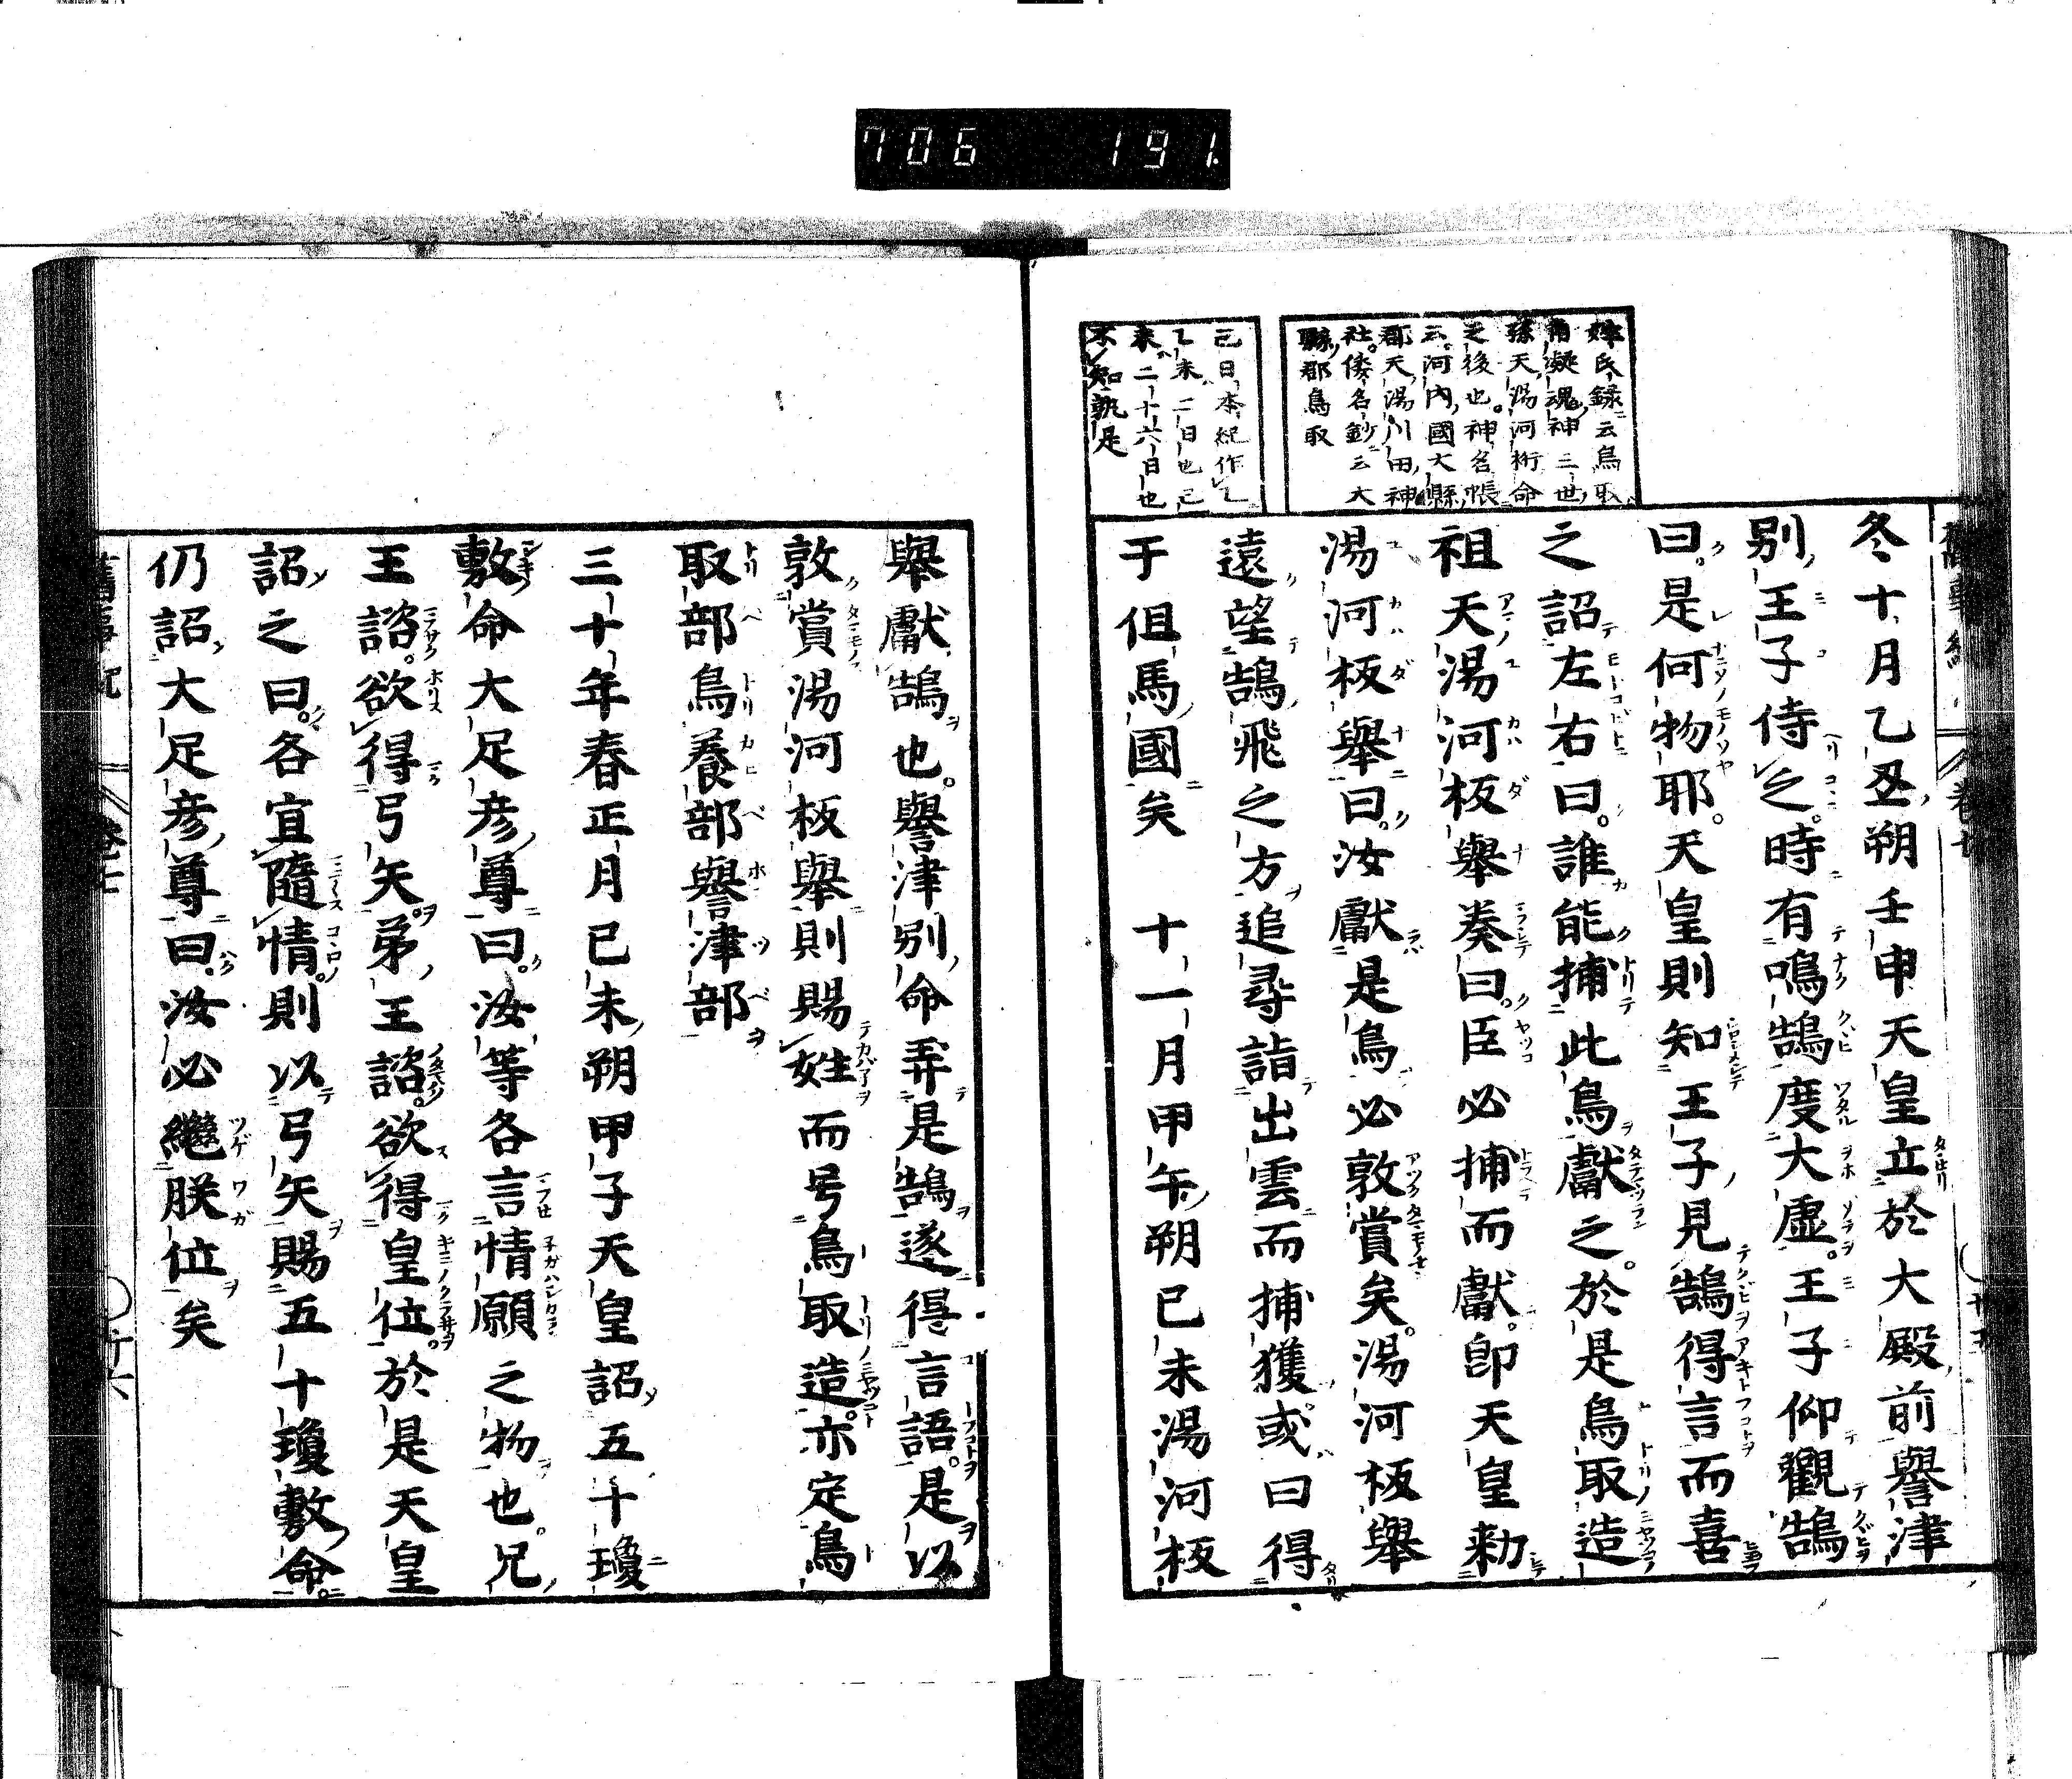 706 191
姓氏録云鳥取
角凝魂神三世
孫天湯河桁命
之後也神名帳
云河内國大縣
郡天湯川田神
社倭名鈔云大
縣郡鳥取
己日本紀作乙
乙未二日也己
未二十六日也
不知孰是
冬十月乙丑朔壬申天皇立於大殿前譽津
別王子侍之時有鳴鵠度大虛王子仰觀鵠
曰是何物耶天皇則知王子見鵠得言而喜
之詔左右曰誰能捕此鳥獻之於是鳥取造
祖天湯河板舉奏曰臣必捕而獻即天皇勑
湯河板舉曰汝獻是鳥必敦賞矣湯河板舉
遠望鵠飛之方追尋詣出雲而捕獲或曰得
于但馬國矣 十一月甲午朔己未湯河板
舉獻鵠也譽津別命弄是鵠遂得言語是以
敦賞湯河板舉則賜姓而号鳥取造亦定鳥
取部鳥養部譽津部
三十年春正月己未朔甲子天皇詔五十瓊
敷命大足彦尊曰汝等各言情願之物也兄
王諮欲得弓矢弟王諮欲得皇位於是天皇
詔之曰各宜隨情則以弓矢賜五十瓊敷命
仍詔大足彦尊曰汝必繼朕位矣